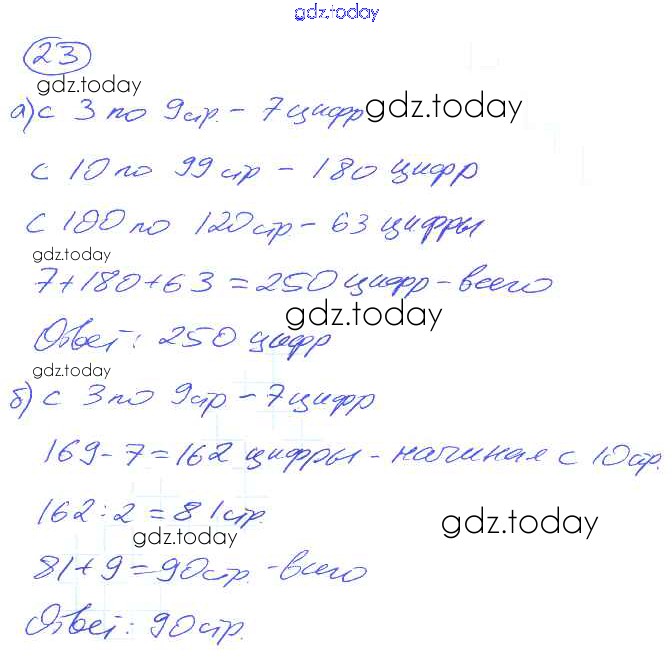 gdz.today
23
gdz.today
а) с 3 по 9 стр. - 7 цифр gdz.today
с 10 по 99 стр - 180 цифр
с 100 по 120 стр - 63 цифры
gdz.today
7+180+63=250 цифр - всего
gdz.today
Ответ: 250 цифр
gdz.today
б) с 3 по 9 стр - 7 цифр
169-7=162 цифры - начиная с 10 стр.
162:2=81 стр.
gdz.today gdz.today
81+9=90 стр. - всего
Ответ: 90 стр.